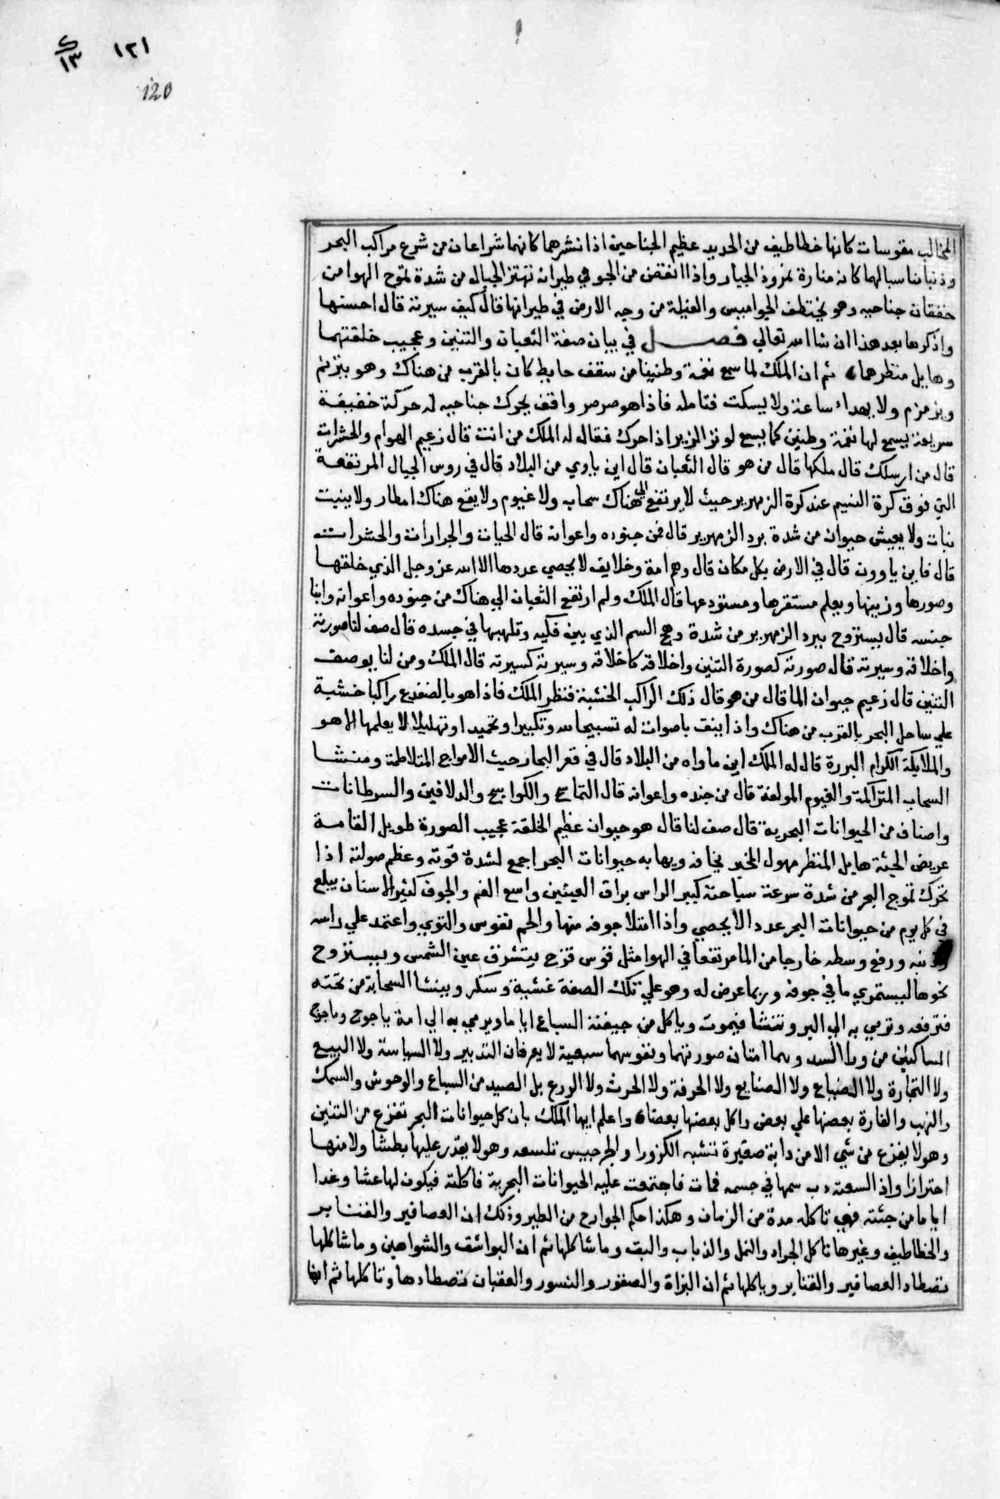 ١٢١ ٢/١٣
120
المخالب مقوسات كانها خطاطيف من الحديد عظيم الجناحين اذا نشرهما كانهما شراعان من شرع مراكب البحر
وذنبا مناسبا لهما كانه منارة نمرود الجبار واذا انقض من الجو في طيرانه تهتز الجبال من شدة تموج الهوا من
خفقان جناحيه وهو يختطف الجواميس والفيلة من وجه الارض في طيرانها قال كيف سيرته قال احسنها
واذكرها بعد هذا ان شا الله تعالي فصل في بيان صفة الثعبان والتنين وعجيب خلقتهما
وهايل منظرهما ثم ان الملك لما سمع نغمة وطنينا من سقف حايط كان بالقرب من هناك وهو يترنم
ويزمزم ولا يهداء ساعة ولا يسكت فتامله فاذا هو صرصر واقف يحرك جناحيه له حركة خفيفة
سريعة يسمع لها نغمة وطنين كما يسمع لوتر الزير اذا حرك فقال له الملك من انت قال زعيم الهوام والحشرات
قال من ارسلك قال ملكها قال من هو قال الثعبان قال اين ياوي من البلاد قال في روس الجبال المرتفعة
التي فوق كرة النسيم عند كرة الزمهرير حيث لا يرتفع الى هناك سحاب ولا غيوم ولا يقع هناك امطار ولا ينبت
نبات ولا يعيش حيوان من شدة برد الزمهرير قال فمن جنوده واعوانه قال الحيات والجرارات والحشرات
قال فاين ياوون قال في الارض بكل مكان قال وهم امة وخلايف لا يحصي عددها الا الله عز وجل الذي خلقها
وصورها وزينها ويعلم مستقرها ومستودعها قال الملك ولم ارتفع الثعبان الي هناك من جنوده واعوانه وابنا
جنسه قال يستروح ببرد الزمهرير من شدة وهج السم الذي بين فكيه وتلهبها في جسده قال صف لنا صورته
واخلاقه وسيرته قال صورته كصورة التنين واخلاقه كاخلاقه وسيرته كسيرته قال الملك ومن لنا بوصف
التنين قال زعيم حيوان الما قال من هو قال ذلك الراكب الخشبة فنظر الملك فاذا هو بالضفدع راكبا خشبة
علي ساحل البحر بالقرب من هناك واذا ينق باصوات له تسبيحا لله وتكبيرا وتحميدا وتهليلا لا يعلمها الا هو
والملايكة الكرام البررة قال له الملك اين ماواه من البلاد قال في قعر البحار حيث الامواج المتلاطمة ومنشا
السحاب المتراكمة والغيوم المولفة قال من جنده واعوانه قال التماسيح والكواسج والدلافين والسرطانات
واصناف من الحيوانات البحرية قال صف لنا قال هو حيوان عظيم الخلقة عجيب الصورة طويل القامة
عريض الجثة هايل المنظر مهول المخبر تخافه ويهابه حيوانات البحر اجمع لشدة قوته وعظم صولته اذا
تحرك تموج البحر من شدة سرعة سباحته كبير الراس براق العينين واسع الفم والجوف كثير الاسنان يبلع
في كل يوم من حيوانات البحر عددا لا يحصي واذا امتلا جوفه منها واتخم تقوس والتوي واعتمد علي راسه
وذنبه ورفع وسطه خارجا من الما مرتفعا في الهوا مثل قوس قزح يتشرق عين الشمس ويستروح
نحوها ليستمري ما في جوفه وربما عرض له وهو علي تلك الصفة غشية وسكر وينشا السحابة من تحته
فترفعه وترمي به الي البر وتنشا فيموت وياكل من جيفته السباع اياما ويرمي به الي امة ياجوج وماجوج
الساكنين من ورا السد وهما امتان صورتهما ونفوسهما سبعية لا يعرفان التدبير ولا السياسة ولا البيع
ولا التجارة ولا الضياع ولا الصنايع ولا الحرفة ولا الحرث ولا الزرع بل الصيد من السباع والوحوش والسمك
والنهب والغارة بعضها علي بعض واكل بعضها بعضا واعلم ايها الملك بان كل حيوانات البحر تفزع من التنين
وهو لا يفزع من شي الا من دابة صغيرة تشبه الكزورا والجرجيس تلسعه وهو لا يقدر عليها بطشا ولا منها
احترازا واذا لسعته دب سمها في جسمه فمات فاجتمعت عليه الحيوانات البحرية فاكلته فيكون لها عشا وغدا
اياما من جثته فهي تاكله مدة من الزمان وهكذا حكم الجوارح من الطير وذلك ان العصافير والقنابر
والخطاطيف وغيرها تاكل الجراد والنمل والذباب والبق وما شاكلها ثم ان البواشق والشواهين وما شاكلها
تصطاد العصافير والقنابر وياكلها ثم ان البزاة والصقور والنسور والعقبان تصطادها وتاكلها ثم انها